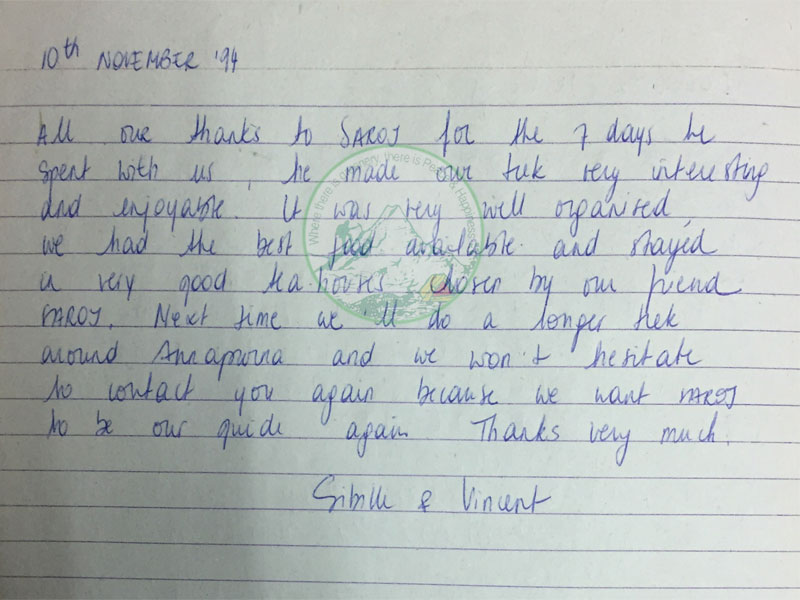 10th NOVEMBER '94
All our thanks to SAROJ for the 7 days he
spent with us, he made our trek very interesting
and enjoyable. It was very well organised,
we had the best food available and stayed
in very good tea-houses chosen by our friend
SAROJ. Next time we'll do a longer trek
around Annapurna and we won't hesitate
to contact you again because we want SAROJ
to be our guide again. Thanks very much.
Sibille & Vincent
Where there is scenery, there is Peace & Happiness